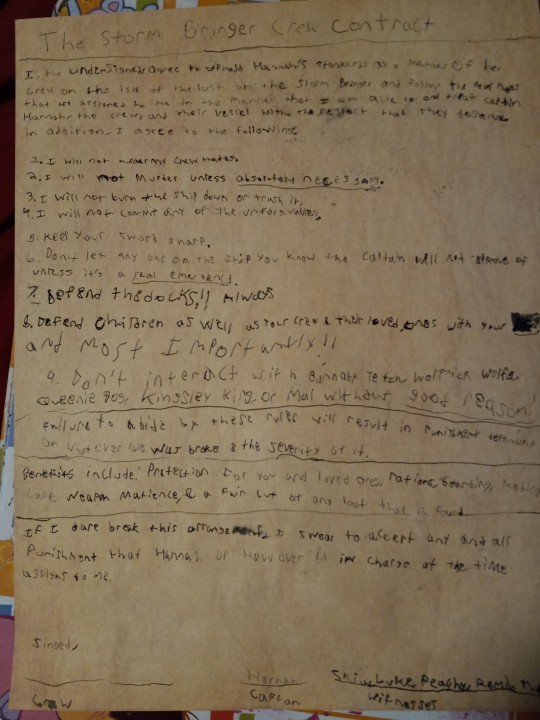 The Storm Bringer Crew Contract
I the undersigned, agree to uphold Hannah's standards as a Member of her
crew on the isle of the lost on the Storm Bringer and follow the rules
that are assigned to me in the manner that I am able to and treat captin
Hannah, the crew, and their vessel with the respect that they deserve
in addition, I agree to the following.
1. I will not murder my crew mates.
2. I will not Murder unless absolutely necessary.
3. I will not burn the ship down or trash it.
4. I will not commit any of the unforgivables.
5. Keep your sword sharp.
6. Don't let any one on the ship you know the captain will not approve of
unless it's a real emergency.
7. Defend the docks!! Always
8. Defend children as well as your crew & their loved ones with your
and Most Importantly!!
9. Don't interact with Wolfe
Queenie Kingsley King, or Mal without good reason!
Failure to abide by these rules will result in punishment
on whatever rule was broke & the severity of it.
Benefits include: Protection for you and loved ones, rations, boarding,
care, weapon & a fair cut of any loot that is found.
If I dare break this arrangement, I swear to accept any and all
Punishment that Hannah or However is in charge at the time
assigns to me.
Singed,
Hannah
Skip, Luke, Peaches,
Crew
Witnesses